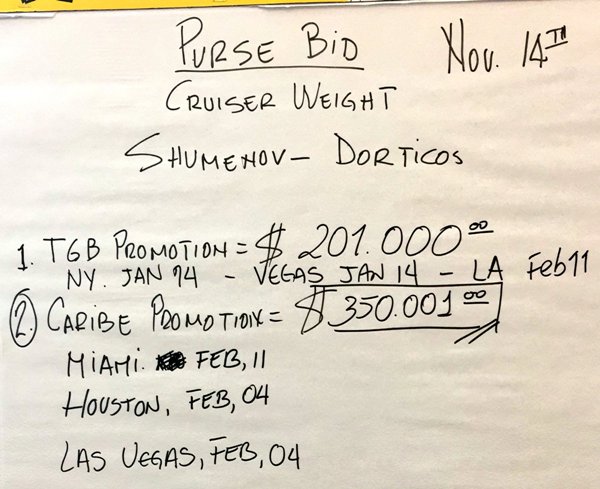 PURSE BID
NOV. 14TH
CRUISER WEIGHT
SHUMENOV - DORTICOS
1. TGB PROMOTION = $ 201.000 00
NY. JAN 14 - VEGAS JAN 14 - LA Feb 11
2. CARIBE PROMOTION = $ 350.001 00
MIAMI. FEB, 11
HOUSTON, FEB, 04
LAS VEGAS, FEB, 04